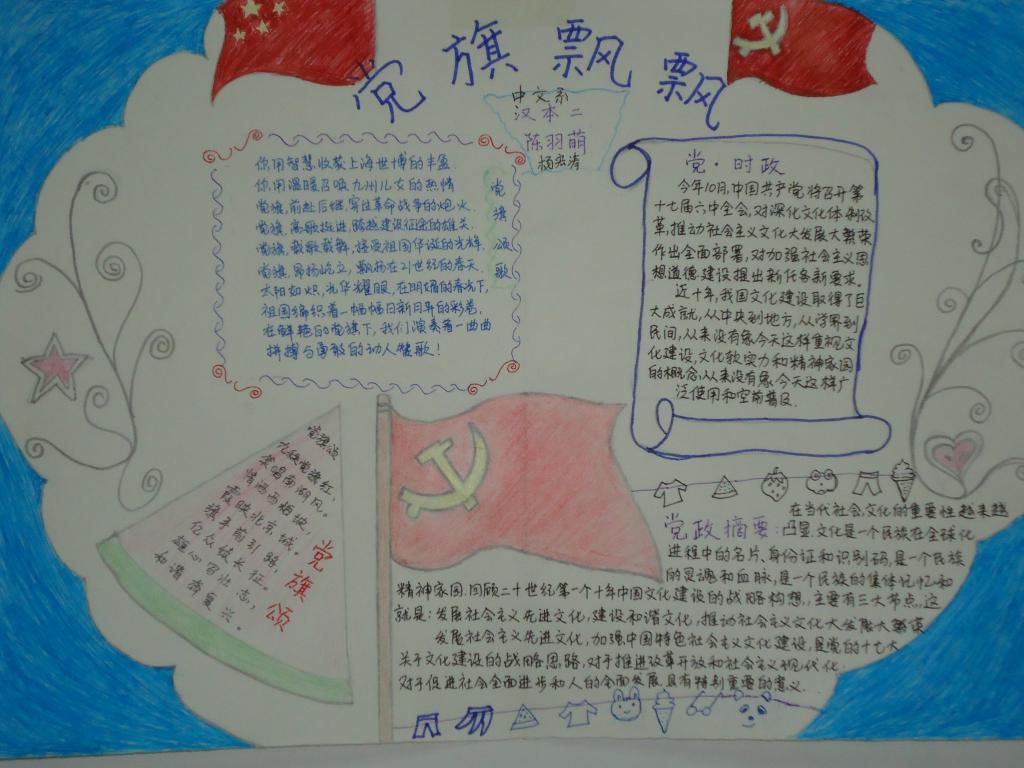 党旗飘飘
中文系
汉本二
陈羽萌
杨宏涛
党旗颂歌
你用智慧收获上海世博的丰盈
你用温暖召唤九州儿女的热情
党旗,前赴后继,穿过革命战争的炮火.
党旗,高歌挺进,跨越建设征途的雄关.
党旗,载歌载舞,接受祖国华诞的光辉.
党旗,昂扬屹立,飘扬在21世纪的春天.
太阳如炽,光华耀眼,在明媚的春光下,
祖国编织着一幅幅日新月异的彩卷,
在鲜艳的党旗下,我们演奏着一曲曲
拼搏与勇敢的动人赞歌!
党·时政
今年10月,中国共产党将召开第
十七届六中全会,对深化文化体制改
革,推动社会主义文化大发展大繁荣
作出全面部署,对加强社会主义思
想道德建设提出新任务新要求。
近十年,我国文化建设取得了巨
大成就,从中央到地方,从学界到
民间,从来没有象今天这样重视文
化建设,文化软实力和精神家园
的概念,从来没有象今天这样广
泛使用和空前普及.
党旗颂
九级党旗红,
荣唱国朝风。
情洒两枪披,
霞映北京城。
旗手前引路,
亿众征长征。
雄心写壮志,
和谐奔复兴。
党旗颂
在当代社会,文化的重要性越来越
党政摘要:凸显.文化是一个民族在全球化
进程中的名片、身份证和识别码,是一个民族
的灵魂和血脉,是一个民族的集体记忆和
精神家园.回顾二十世纪第一个十年中国文化建设的战略构想,主要有三大节点,这
就是:发展社会主义先进文化,建设和谐文化,推动社会主义文化大发展大繁荣
发展社会主义先进文化,加强中国特色社会主义文化建设,是党的十七大
关于文化建设的战略思路,对于推进改革开放和社会主义现代化.
对于促进社会全面进步和人的全面发展,具有特别重要的意义.